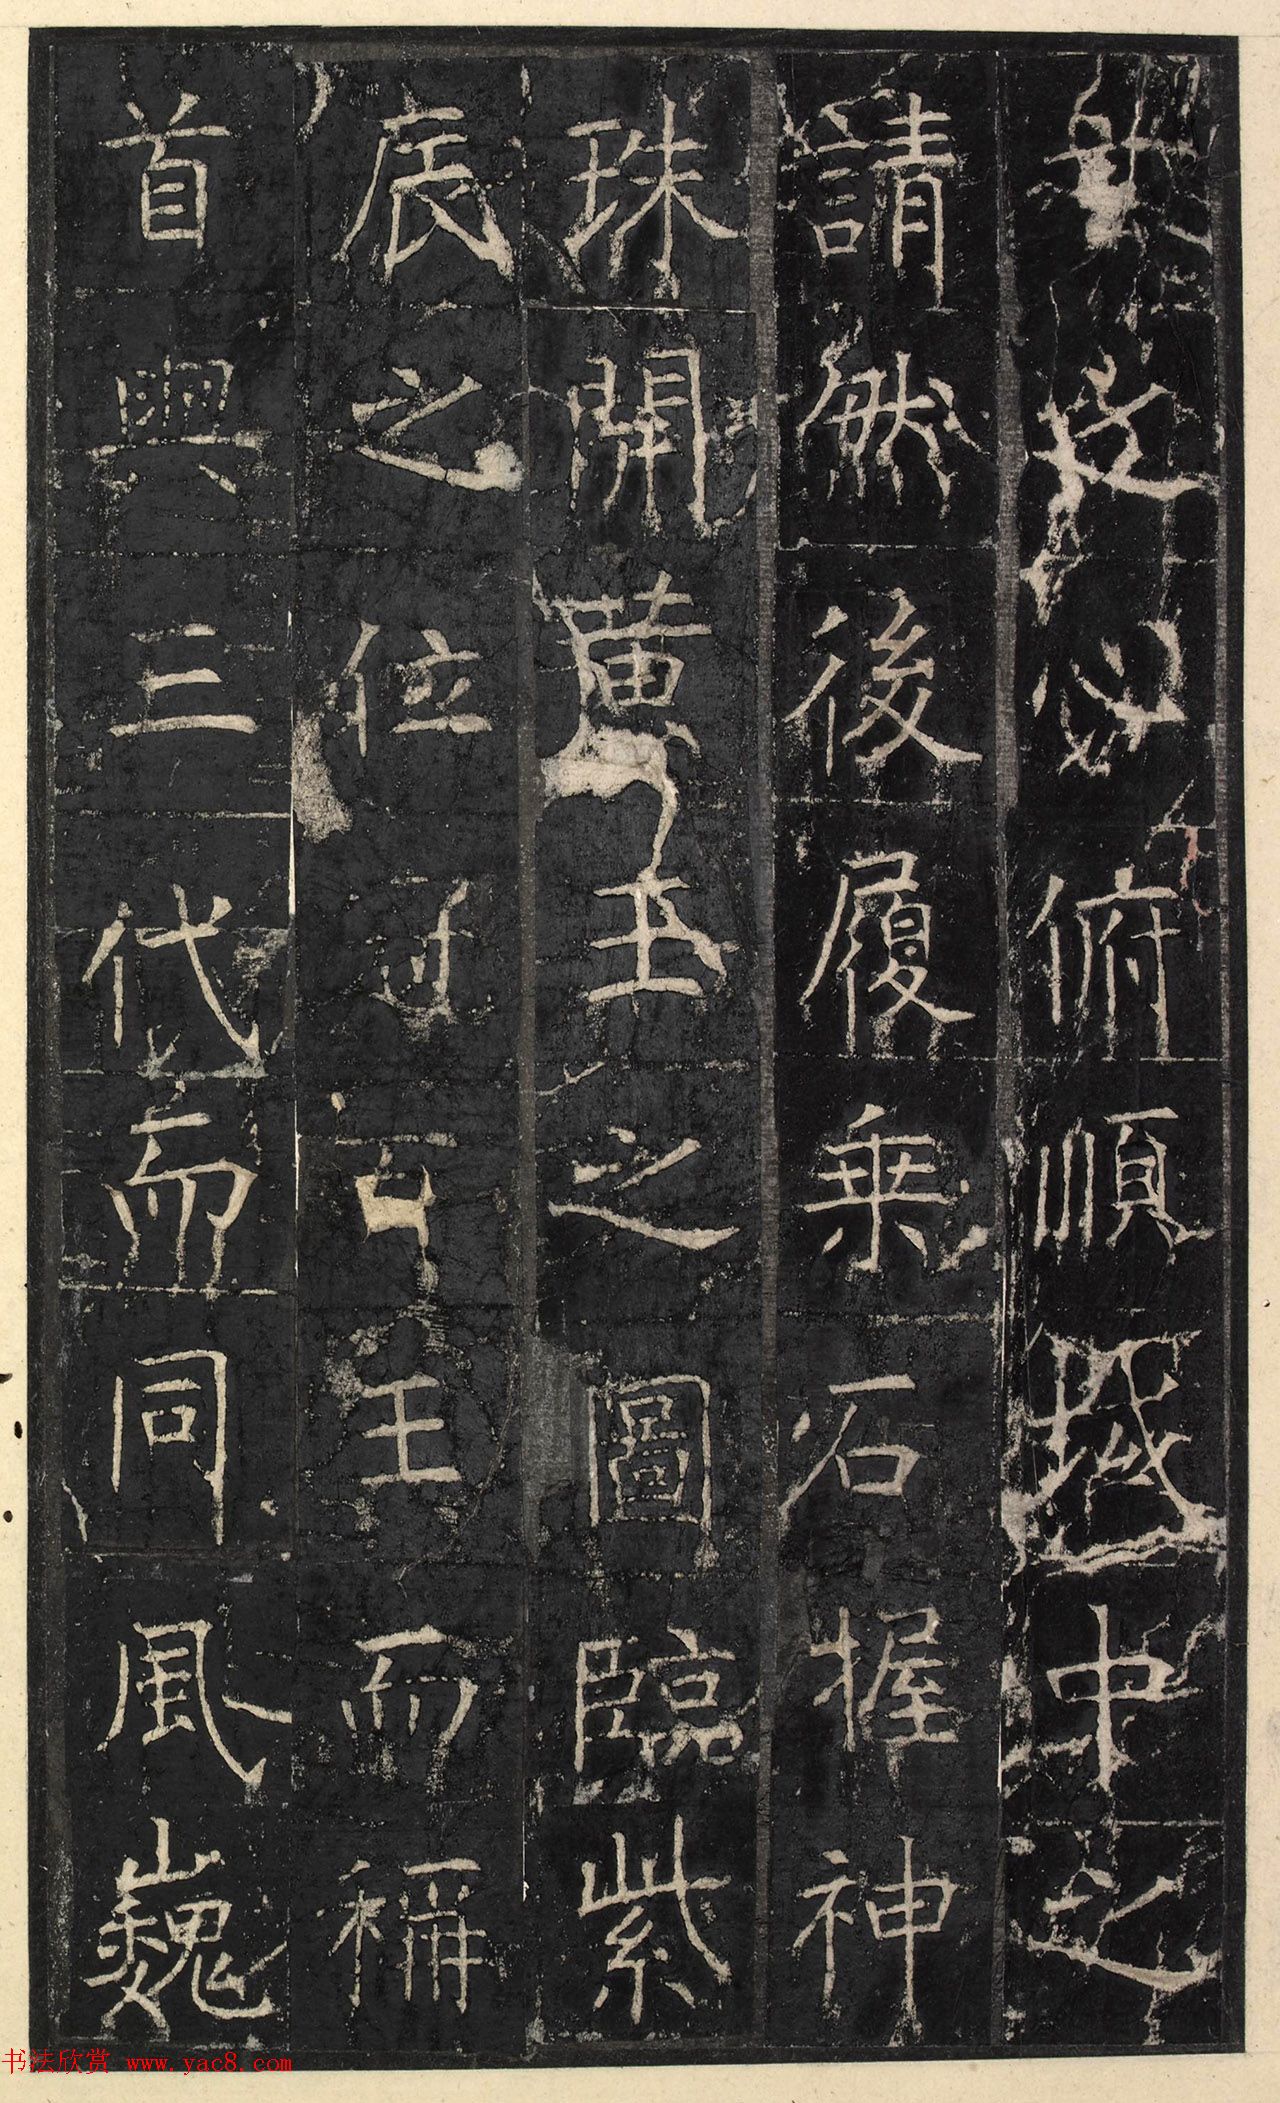 心俯順域中之
請然後履乘石握神
珠開黃玉之圖臨紫
宸之位冠百王而稱
首與三代而同風巍
书法欣赏 www.yac8.com